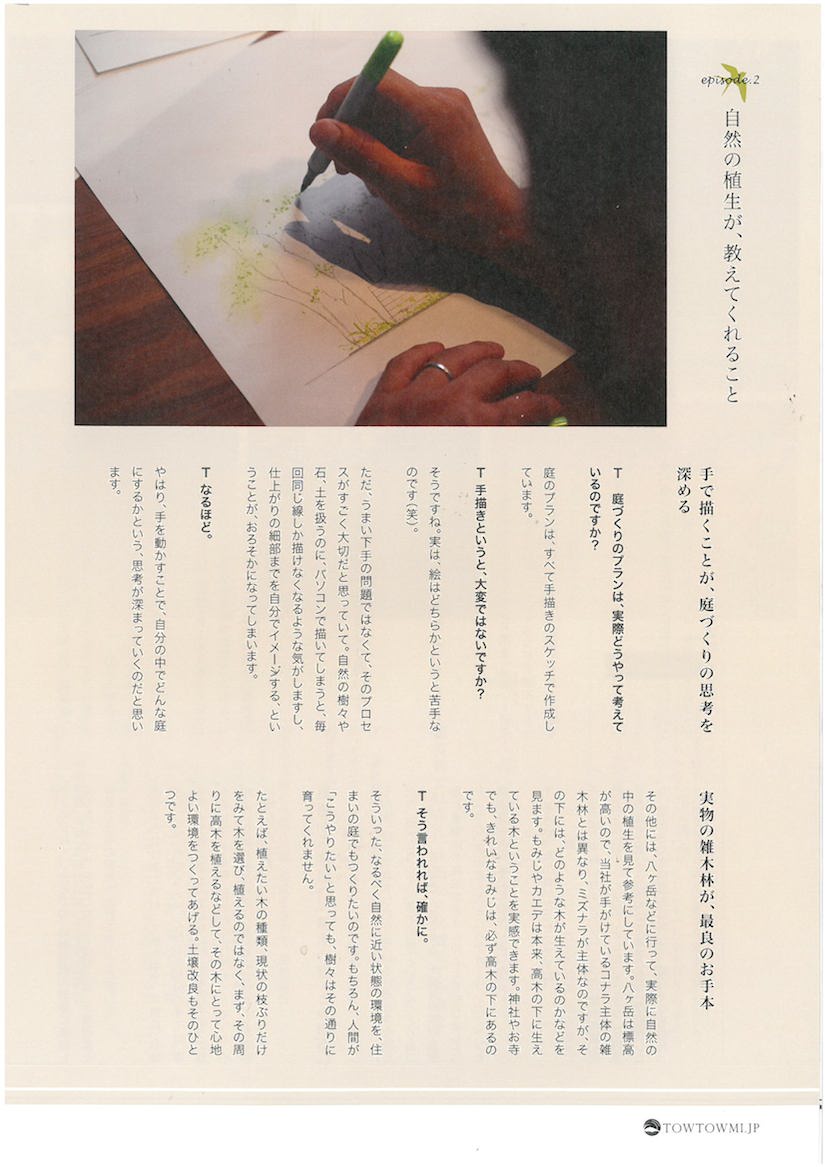 episode.2
自然の植生が、教えてくれること
手で描くことが、庭づくりの思考を
深める
T　庭づくりのプランは、実際どうやって考えて
いるのですか？
庭のプランは、すべて手描きのスケッチで作成し
ています。
T　手描きというと、大変ではないですか？
そうですね。実は、絵はどちらかというと苦手な
のです（笑）。
ただ、うまい下手の問題ではなくて、そのプロセ
スがすごく大切だと思っていて。自然の樹々や
石、土を扱うのに、パソコンで描いてしまうと、毎
回同じ線しか描けなくなるような気がしますし、
仕上がりの細部までを自分でイメージする、とい
うことが、おろそかになってしまいます。
T　なるほど。
やはり、手を動かすことで、自分の中でどんな庭
にするかという、思考が深まっていくのだと思い
ます。
実物の雑木林が、最良のお手本
その他には、八ヶ岳などに行って、実際に自然の
中の植生を見て参考にしています。八ヶ岳は標高
が高いので、当社が手がけているコナラ主体の雑
木林とは異なり、ミズナラが主体なのですが、そ
の下には、どのような木が生えているのかなどを
見ます。もみじやカエデは本来、高木の下に生え
ている木ということを実感できます。神社やお寺
でも、きれいなもみじは、必ず高木の下にあるの
です。
T　そう言われれば、確かに。
そういった、なるべく自然に近い状態の環境を、住
まいの庭でもつくりたいのです。もちろん、人間が
「こうやりたい」と思っても、樹々はその通りに
育ってくれません。
たとえば、植えたい木の種類、現状の枝ぶりだけ
をみて木を選び、植えるのではなく、まず、その周
りに高木を植えるなどして、その木にとって心地
よい環境をつくってあげる。土壌改良もそのひと
つです。
TOWTOWMI.JP